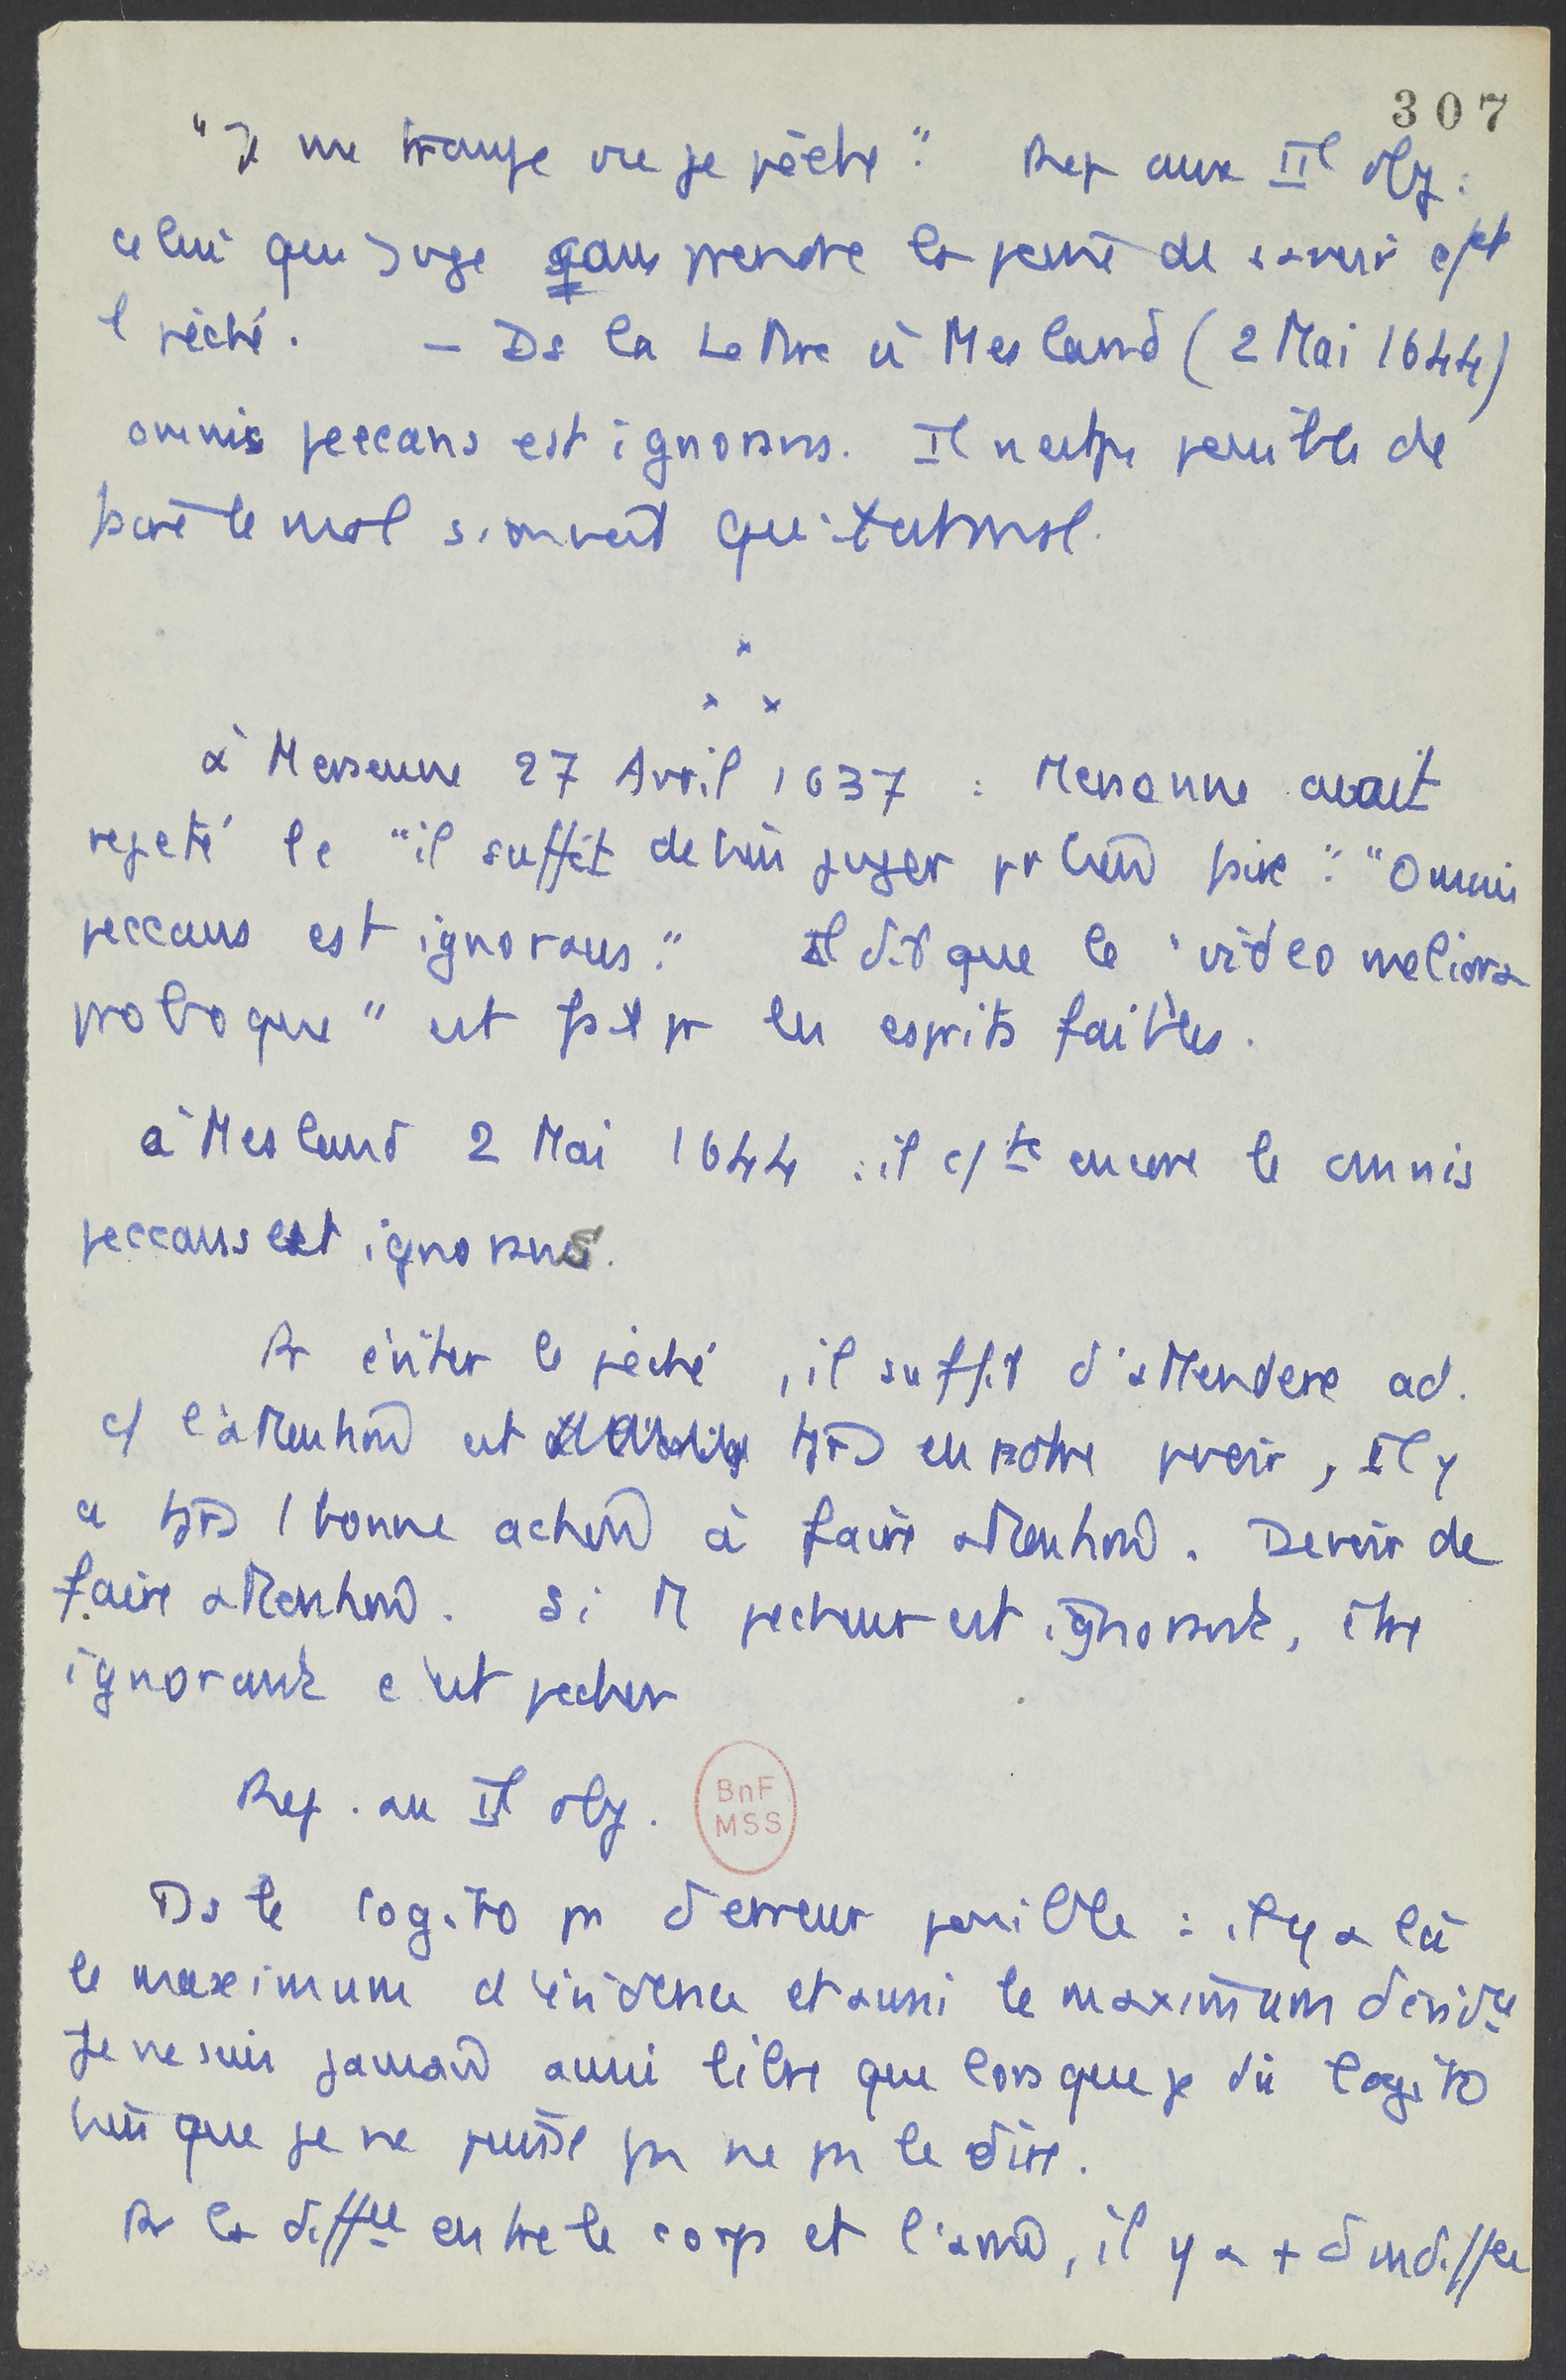 307
"Je me trompe ou je pèche". Rep aux IIe obj :
celui qui juge sans prendre la peine de savoir c/et
1 péché. — Ds la Lettre à Mesland (2 Mai 1644)
omnis peccans est ignorans. Il n'est pas possible de
faire le mal si on voit que c'est mal.
x
x x
à Mersenne 27 Avril 1637 : Mersenne avait
rejeté le "il suffit de bien juger pr bien faire". "Omnis
peccans est ignorans". Il dit que le "video meliora
proboque" est fait pr les esprits faibles.
à Mesland 2 Mai 1644 : il c/te encore le omnis
peccans est ignorans.
Pr éviter le péché, il suffit d'attendere ad.
c/ l'attention est tjrs en notre pvoir, Il y
a tjrs 1 bonne action à faire attention. Devoir de
faire attention. Si tt pecheur est ignorant, être
ignorant c'est pecher
Rep. aux IIe obj.
BnF
MSS
Ds le Cogito pas d'erreur possible : il y a là
le maximum d'évidence et aussi le maximum d'évidce
Je ne suis jamais aussi libre que lorsque je dis Cogito
bien que je ne puisse pas ne pas le dire.
Pr la diffce entre le corps et l'âme, il y a + d'indiffce